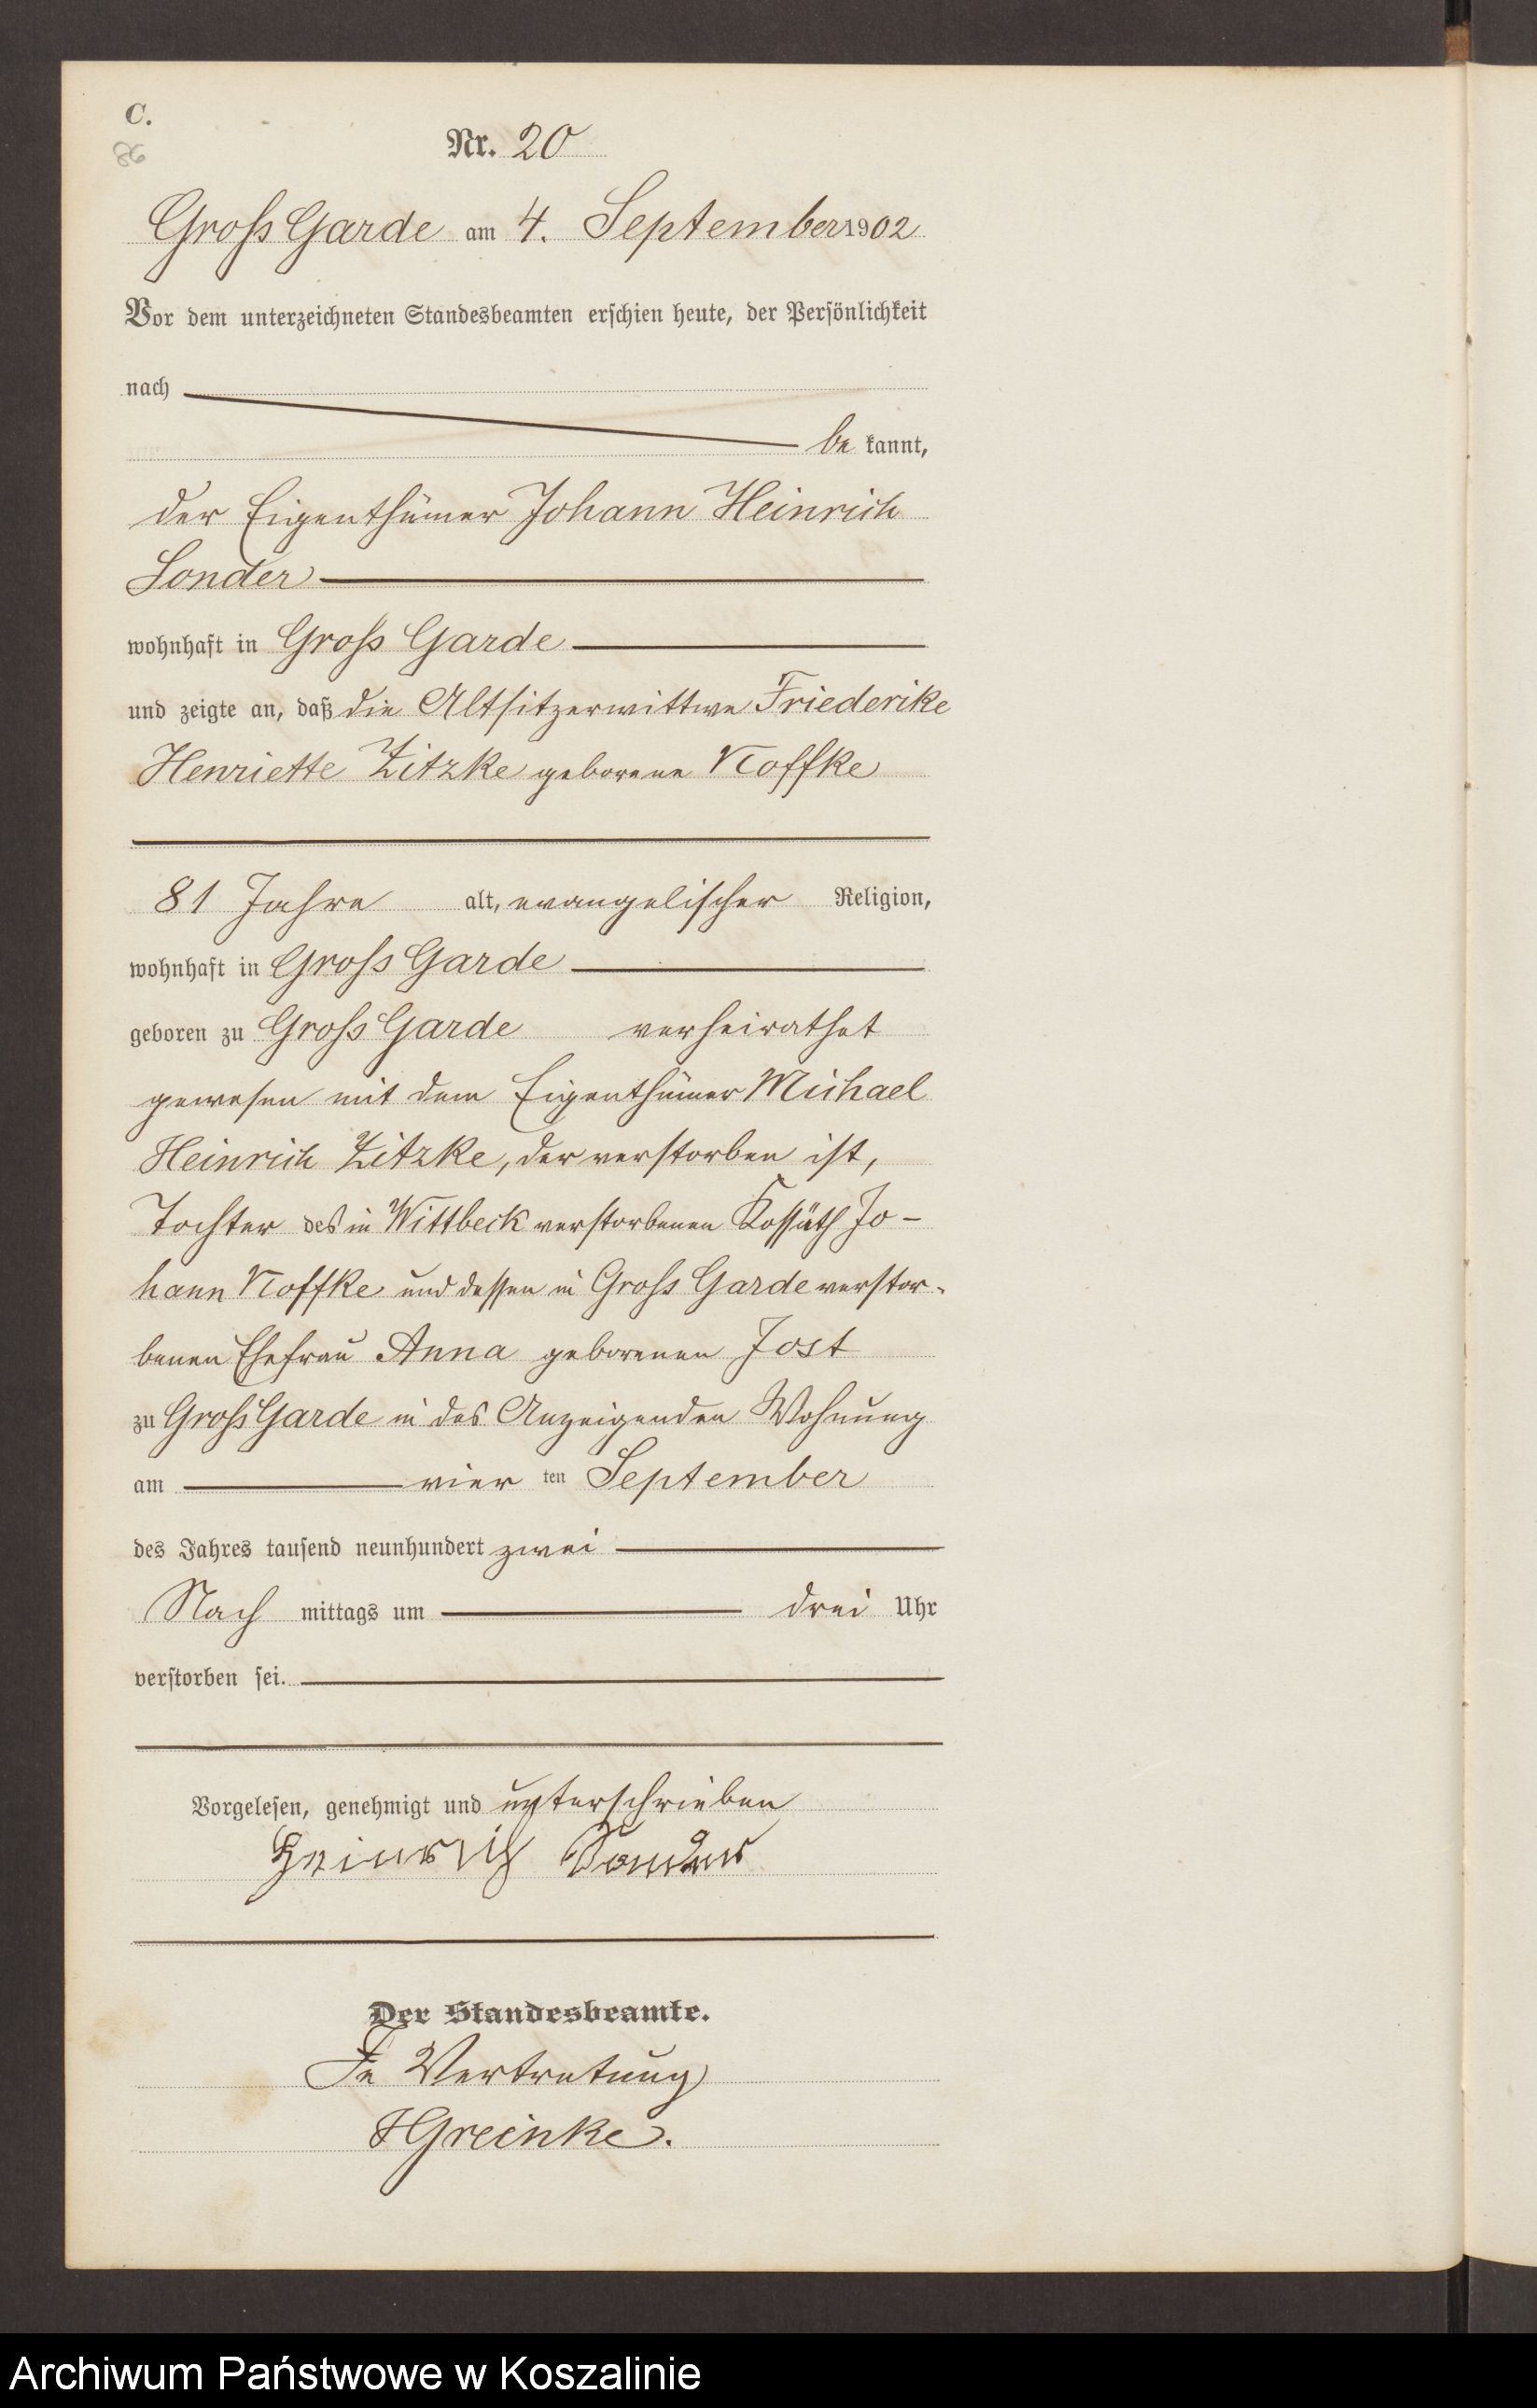 C.
86
Nr. 20
Gross Garde am 4. September 1902
Vor dem unterzeichneten Standesbeamten erschien heute, der Persönlichkeit
nach
be kannt,
der Eigenthümer Johann Heinrich
Sonder
wohnhaft in Gross Garde
und zeigte an, daß die Altsitzerwittwe Friederike
Henriette Zitzke geborene Noffke
81 Jahre alt, evangelischer Religion,
wohnhaft in Gross Garde
geboren zu Gross Garde verheirathet
gewesen mit dem Eigenthümer Michael
Heinrich Zitzke, der verstorben ist,
Tochter des in Wittbeck verstorbenen Kossäth Jo-
hann Noffke und dessen in Gross Garde verstor-
benen Ehefrau Anna geborenen Jost
zu Gross Garde in des Anzeigenden Wohnung
am vier ten September
des Jahres tausend neunhundert zwei
Nach mittags um drei Uhr
verstorben sei.
Vorgelesen, genehmigt und unterschrieben
Heinrich Sonder
Der Standesbeamte.
In Vertretung
HGreinke.
Archiwum Państwowe w Koszalinie